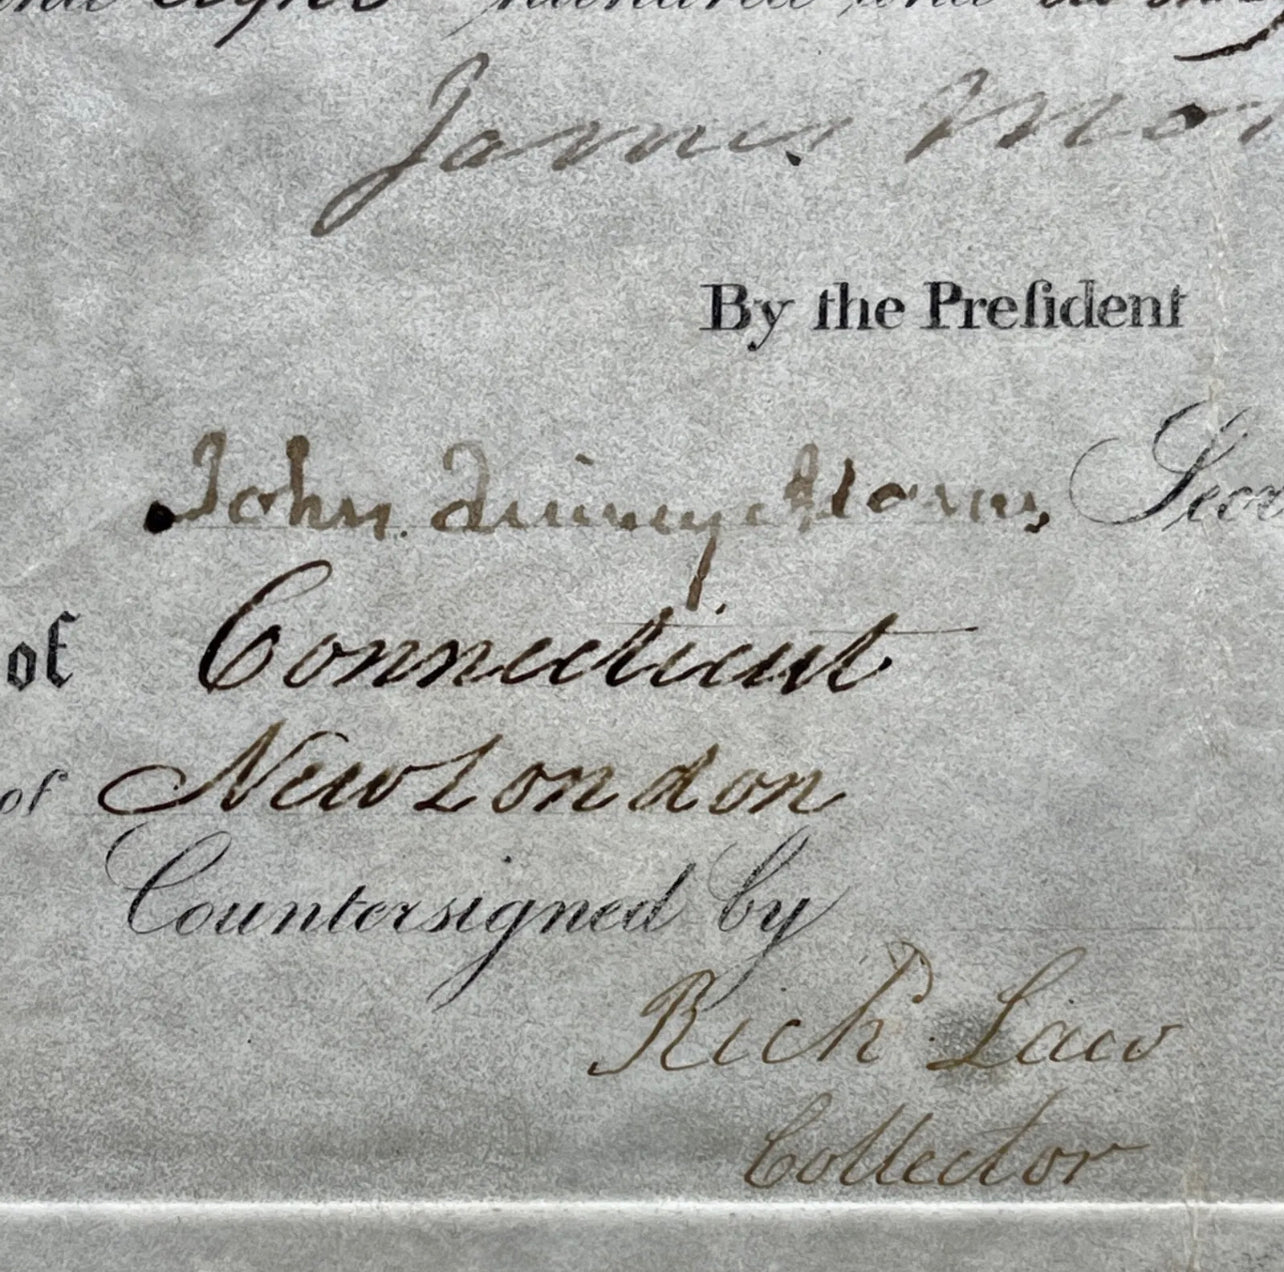 eight hundred and
James Mo
By the Preſident
John Quincy Adams, Secr
of Connecticut
of New London
Countersigned by
Richd Law
Collector